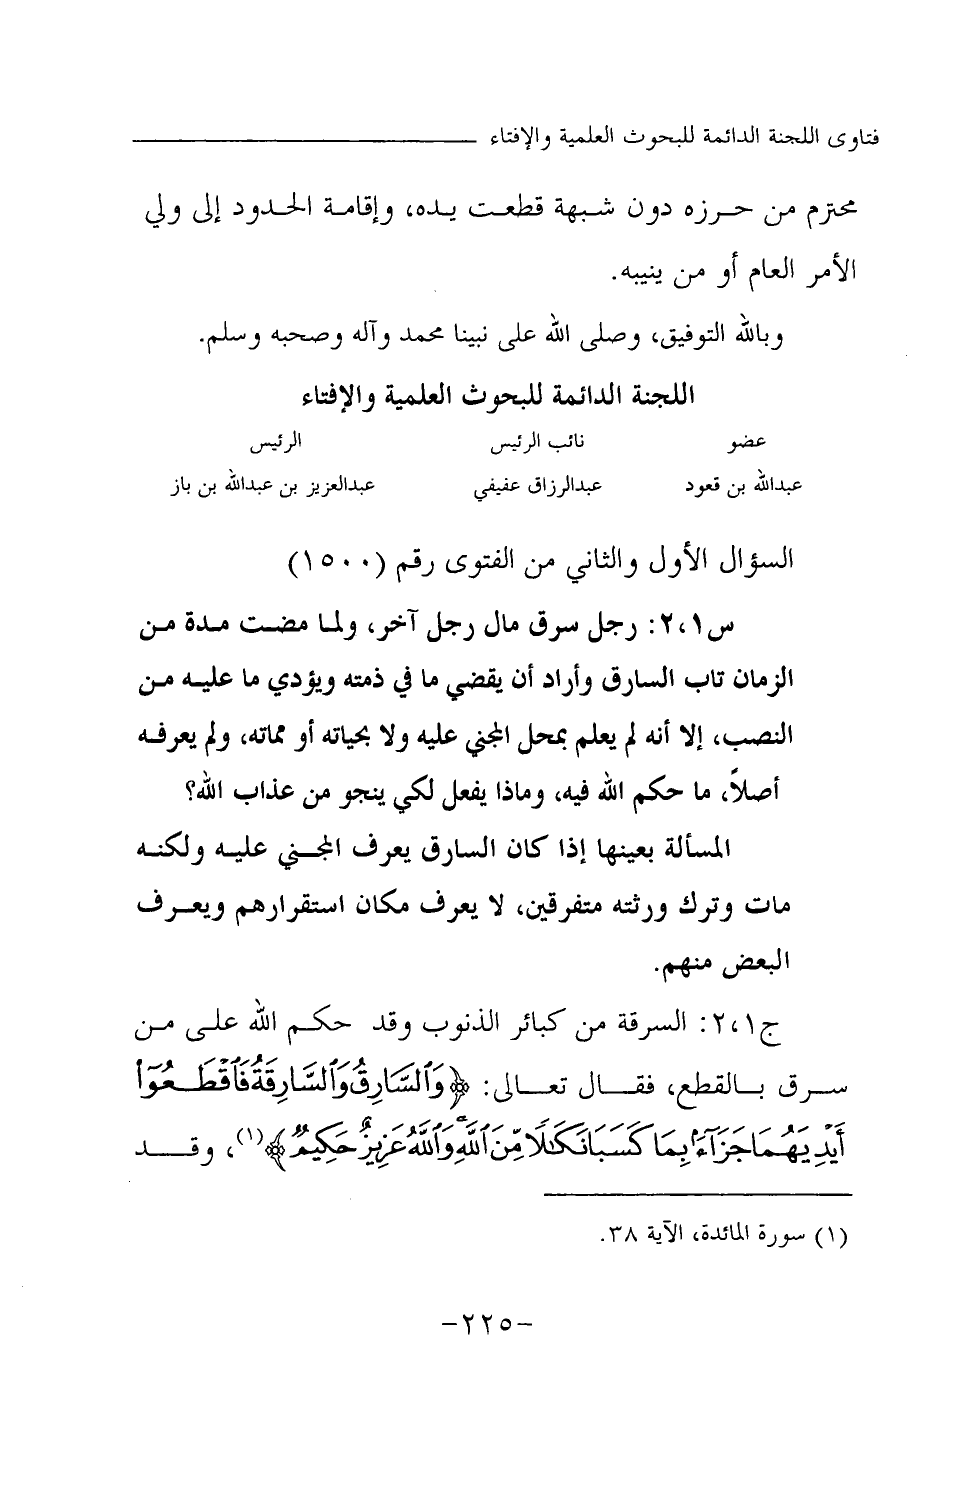 فتاوى اللجنة الدائمة للبحوث العلمية والإفتاء
محترم من حرزه دون شبهة قطعت يده، وإقامة الحدود إلى ولي
الأمر العام أو من ينيبه.
وبالله التوفيق، وصلى الله على نبينا محمد وآله وصحبه وسلم.
اللجنة الدائمة للبحوث العلمية والإفتاء
عضو نائب الرئيس الرئيس
عبدالله بن قعود عبدالرزاق عفيفي عبدالعزيز بن عبدالله بن باز
السؤال الأول والثاني من الفتوى رقم (١٥٠٠)
س١،٢: رجل سرق مال رجل آخر، ولما مضت مدة من
الزمان تاب السارق وأراد أن يقضي ما في ذمته ويؤدي ما عليه من
النصب، إلا أنه لم يعلم بمحل المجني عليه ولا بحياته أو مماته، ولم يعرفه
أصلاً، ما حكم الله فيه، وماذا يفعل لكي ينجو من عذاب الله؟
المسألة بعينها إذا كان السارق يعرف المجني عليه ولكنه
مات وترك ورثته متفرقين، لا يعرف مكان استقرارهم ويعرف
البعض منهم.
ج١،٢: السرقة من كبائر الذنوب وقد حكم الله على من
سرق بالقطع، فقال تعالى: ﴿وَٱلسَّارِقُ وَٱلسَّارِقَةُ فَٱقۡطَعُوٓاْ
أَيۡدِيَهُمَا جَزَآءَۢ بِمَا كَسَبَا نَكَٰلٗا مِّنَ ٱللَّهِۗ وَٱللَّهُ عَزِيزٌ حَكِيمٞ﴾(١)، وقد
(١) سورة المائدة، الآية ٣٨.
-٢٢٥-